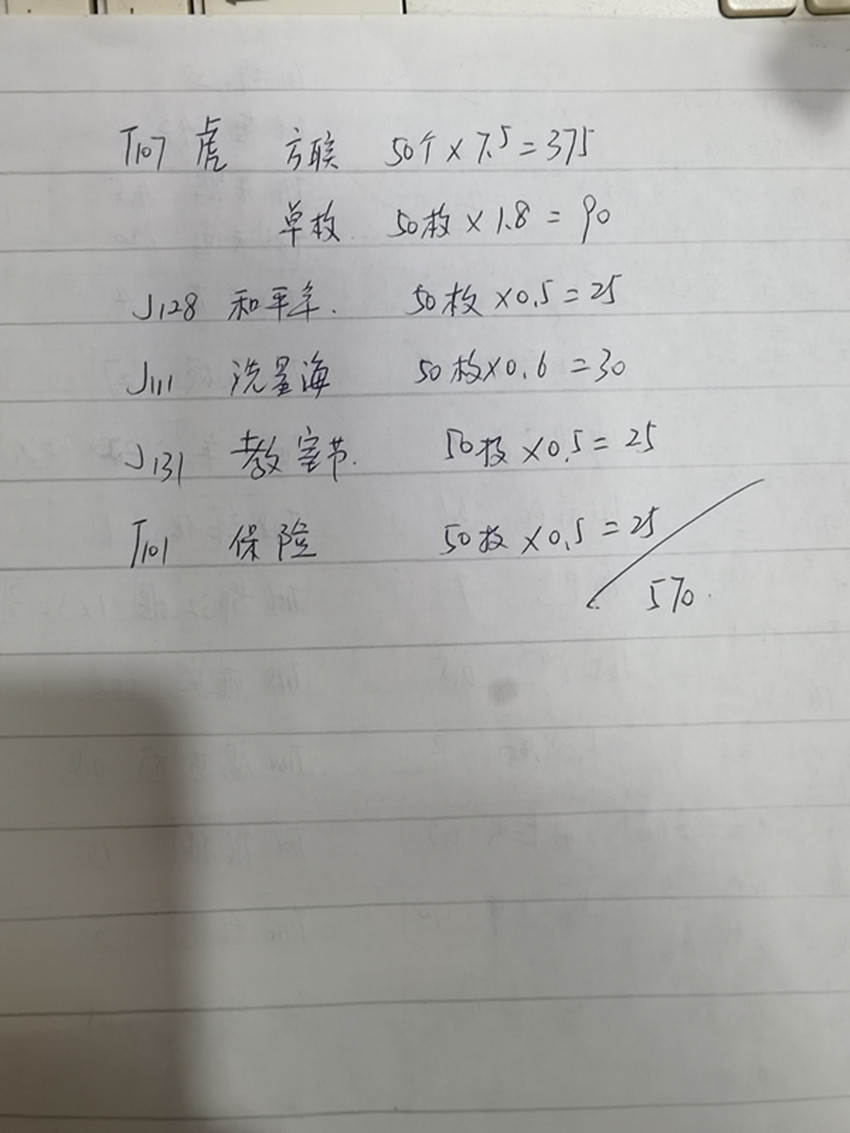 T107 虎 方联 50个×7.5=375
单枚 50枚×1.8=90
J128 和平年. 50枚×0.5=25
J111 冼星海 50枚×0.6=30
J131 教室节. 50枚×0.5=25
T101 保险 50枚×0.5=25
570.